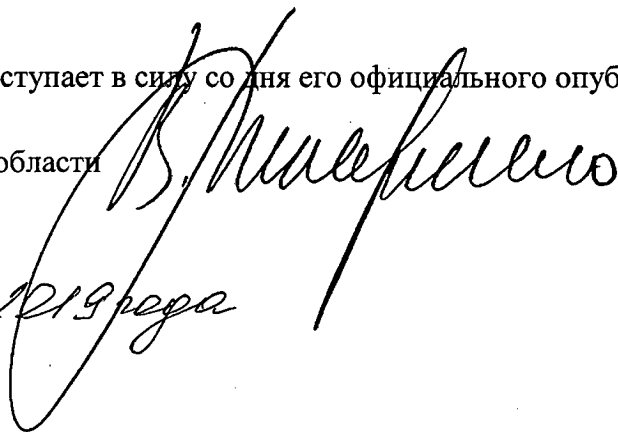 ступает в силу со дня его официального опуб
области
2019 года